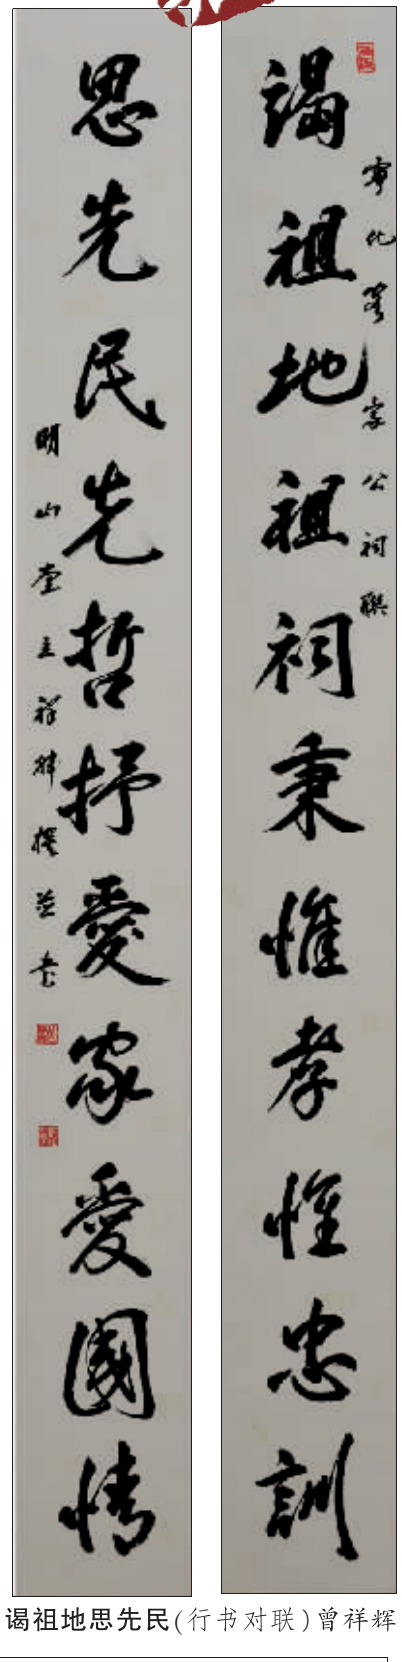 謁祖地祖祠秉惟孝惟忠訓
寧化客家公祠聯
思先民先哲抒愛家愛國情
明山堂主祥輝撰並書
谒祖地思先民(行书对联)曾祥辉